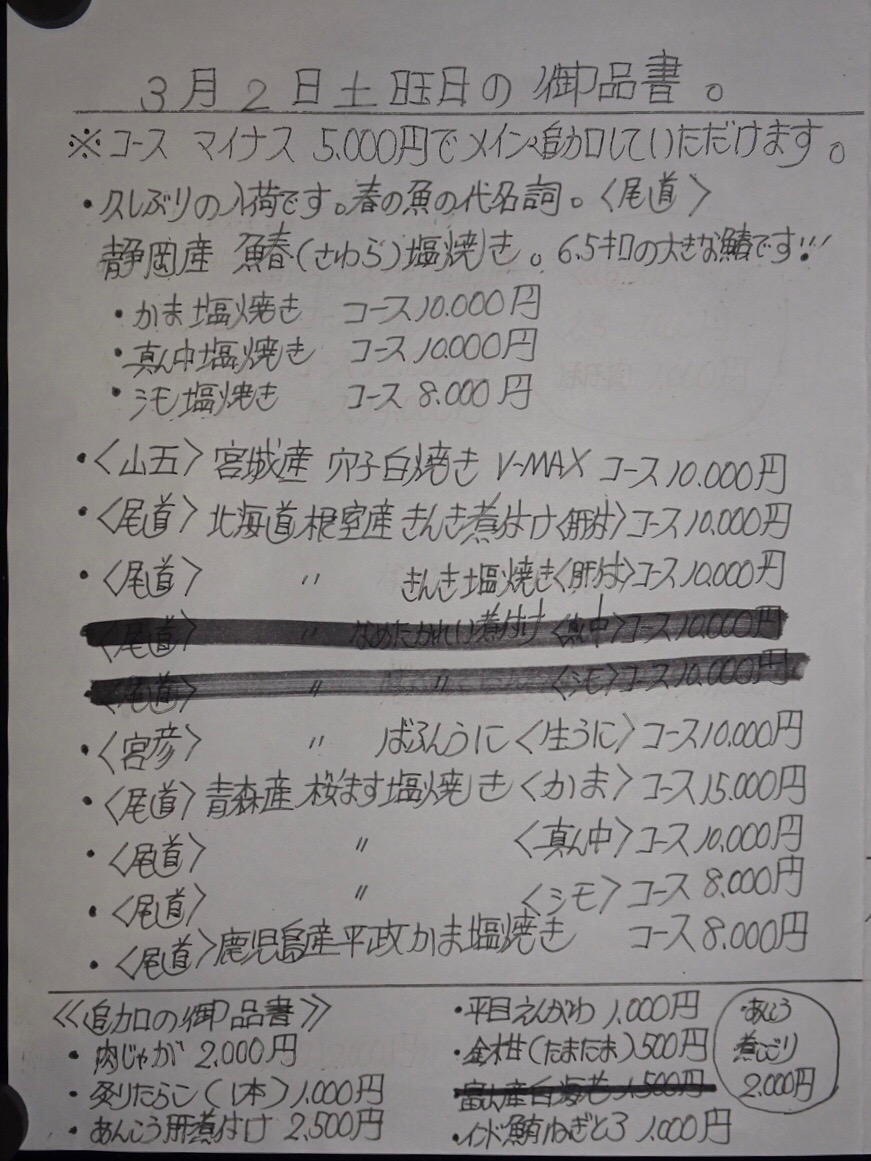 3月2日土曜日の御品書。
※コース マイナス 5.000円でメイン追加していただけます。
・久しぶりの入荷です。春の魚の代名詞。〈尾道〉
静岡産 鰆(さわら)塩焼き。6.5キロの大きな鰆です!!
・かま塩焼き コース10.000円
・真ん中塩焼き コース10.000円
・シモ塩焼き コース8.000円
・〈山五〉宮城産 穴子白焼き V-MAX コース10.000円
・〈尾道〉北海道根室産 きんき煮付け〈肝付〉コース10.000円
・〈尾道〉 〃 きんき塩焼き〈肝付〉コース10.000円
〈尾道〉 〃 なめたかれい煮付け〈真中〉コース10.000円
〈尾道〉 〃 〃 〈シモ〉コース10.000円
・〈宮彦〉 〃 ばふんうに〈生うに〉コース10.000円
・〈尾道〉青森産 桜ます塩焼き〈かま〉コース15.000円
・〈尾道〉 〃 〈真ん中〉コース10.000円
・〈尾道〉 〃 〈シモ〉コース8.000円
・〈尾道〉鹿児島産平政かま塩焼き コース8.000円
《追加の御品書》
・肉じゃが 2.000円
・炙りたらこ(1本)1.000円
・あんこう肝煮付け 2.500円
・平目えんがわ 1.000円
・金柑(たまたま)500円
富山産白海老 1.500円
・インド鮪ねぎとろ 1.000円
・あんこう
煮こごり
2.000円